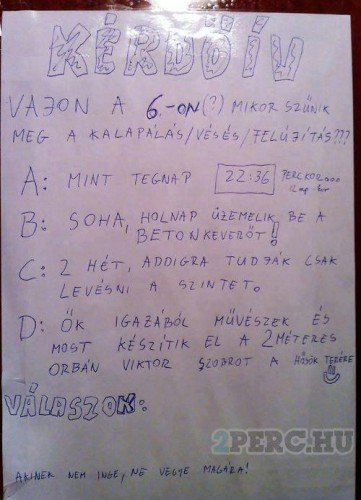 KÉRDŐÍV
VAJON A 6.-ON(?) MIKOR SZŰNIK
MEG A KALAPÁLÁS/VÉSÉS/FELÚJÍTÁS???
A: MINT TEGNAP 22:36 PERCKOR
B: SOHA, HOLNAP ÜZEMELIK BE A
BETONKEVERŐT!
C: 2 HÉT, ADDIGRA TUDJÁK CSAK
LEVÉSNI A SZINTET.
D: ŐK IGAZÁBÓL MŰVÉSZEK ÉS
MOST KÉSZÍTIK EL A 2 MÉTERES
ORBÁN VIKTOR SZOBROT A HŐSÖK TERÉRE
VÁLASZOK:
2PERC.HU
AKINEK NEM INGE, NE VEGYE MAGÁRA!